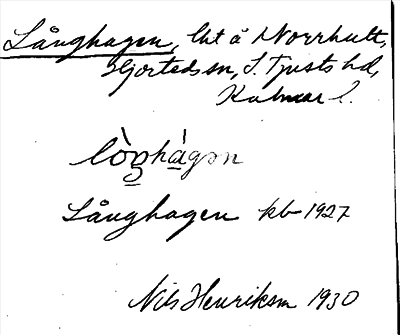 Långhagen, lht å Norrhult,
Hjorteds sn, S. Tjusts hd,
Kalmar l.
lò̱ŋhá̱gən
Långhagen kb 1927
Nils Henriksson 1930